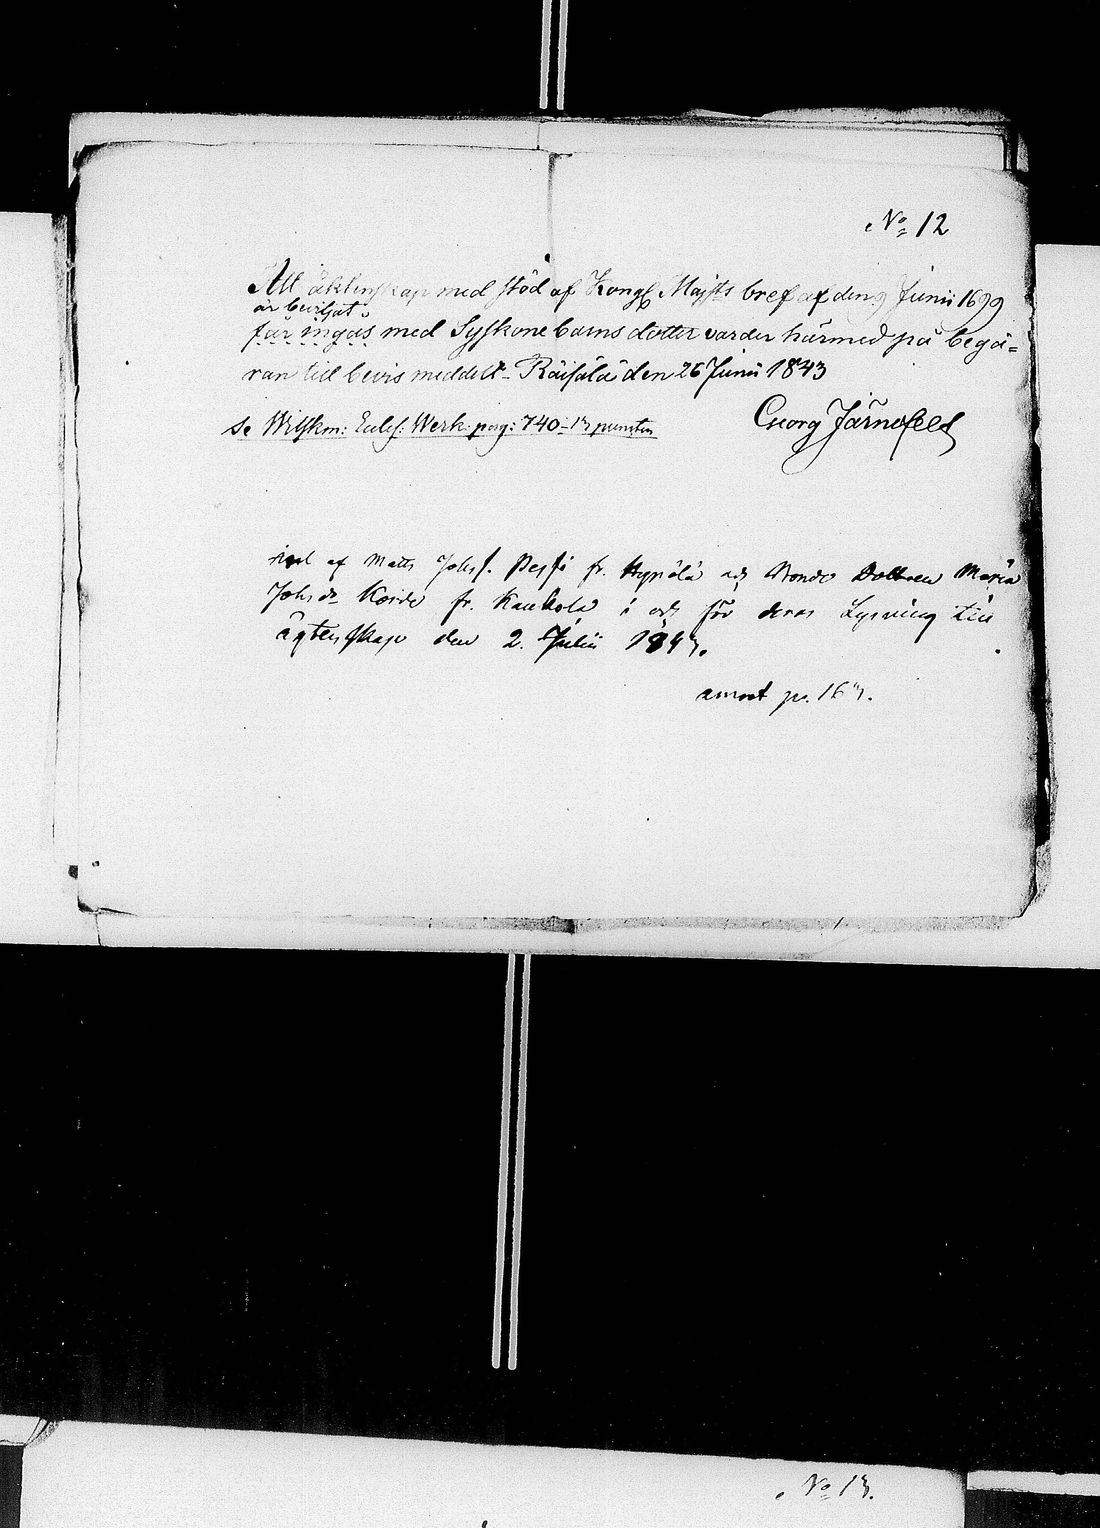 No 12
Att äktenskap med stöd af Kongl Majsts bref af den 9 Junii 1699
är beviljat
får ingås med Syskonebarns dotter varder härmed på begä=
ran till bevis meddelt - Räisälä den 26 Junii 1843
Se Wilskm: Eccles: Werk pag: 740 - 13 puncten
Georg Järnefelt
af Matts Johss. Pessi fr. Hypölä och Bonde Dottren Maria
Johsdr fr. Kaukola i och för deras Lysning till
ägtenskap den 2. Julii 1843.
No 13.